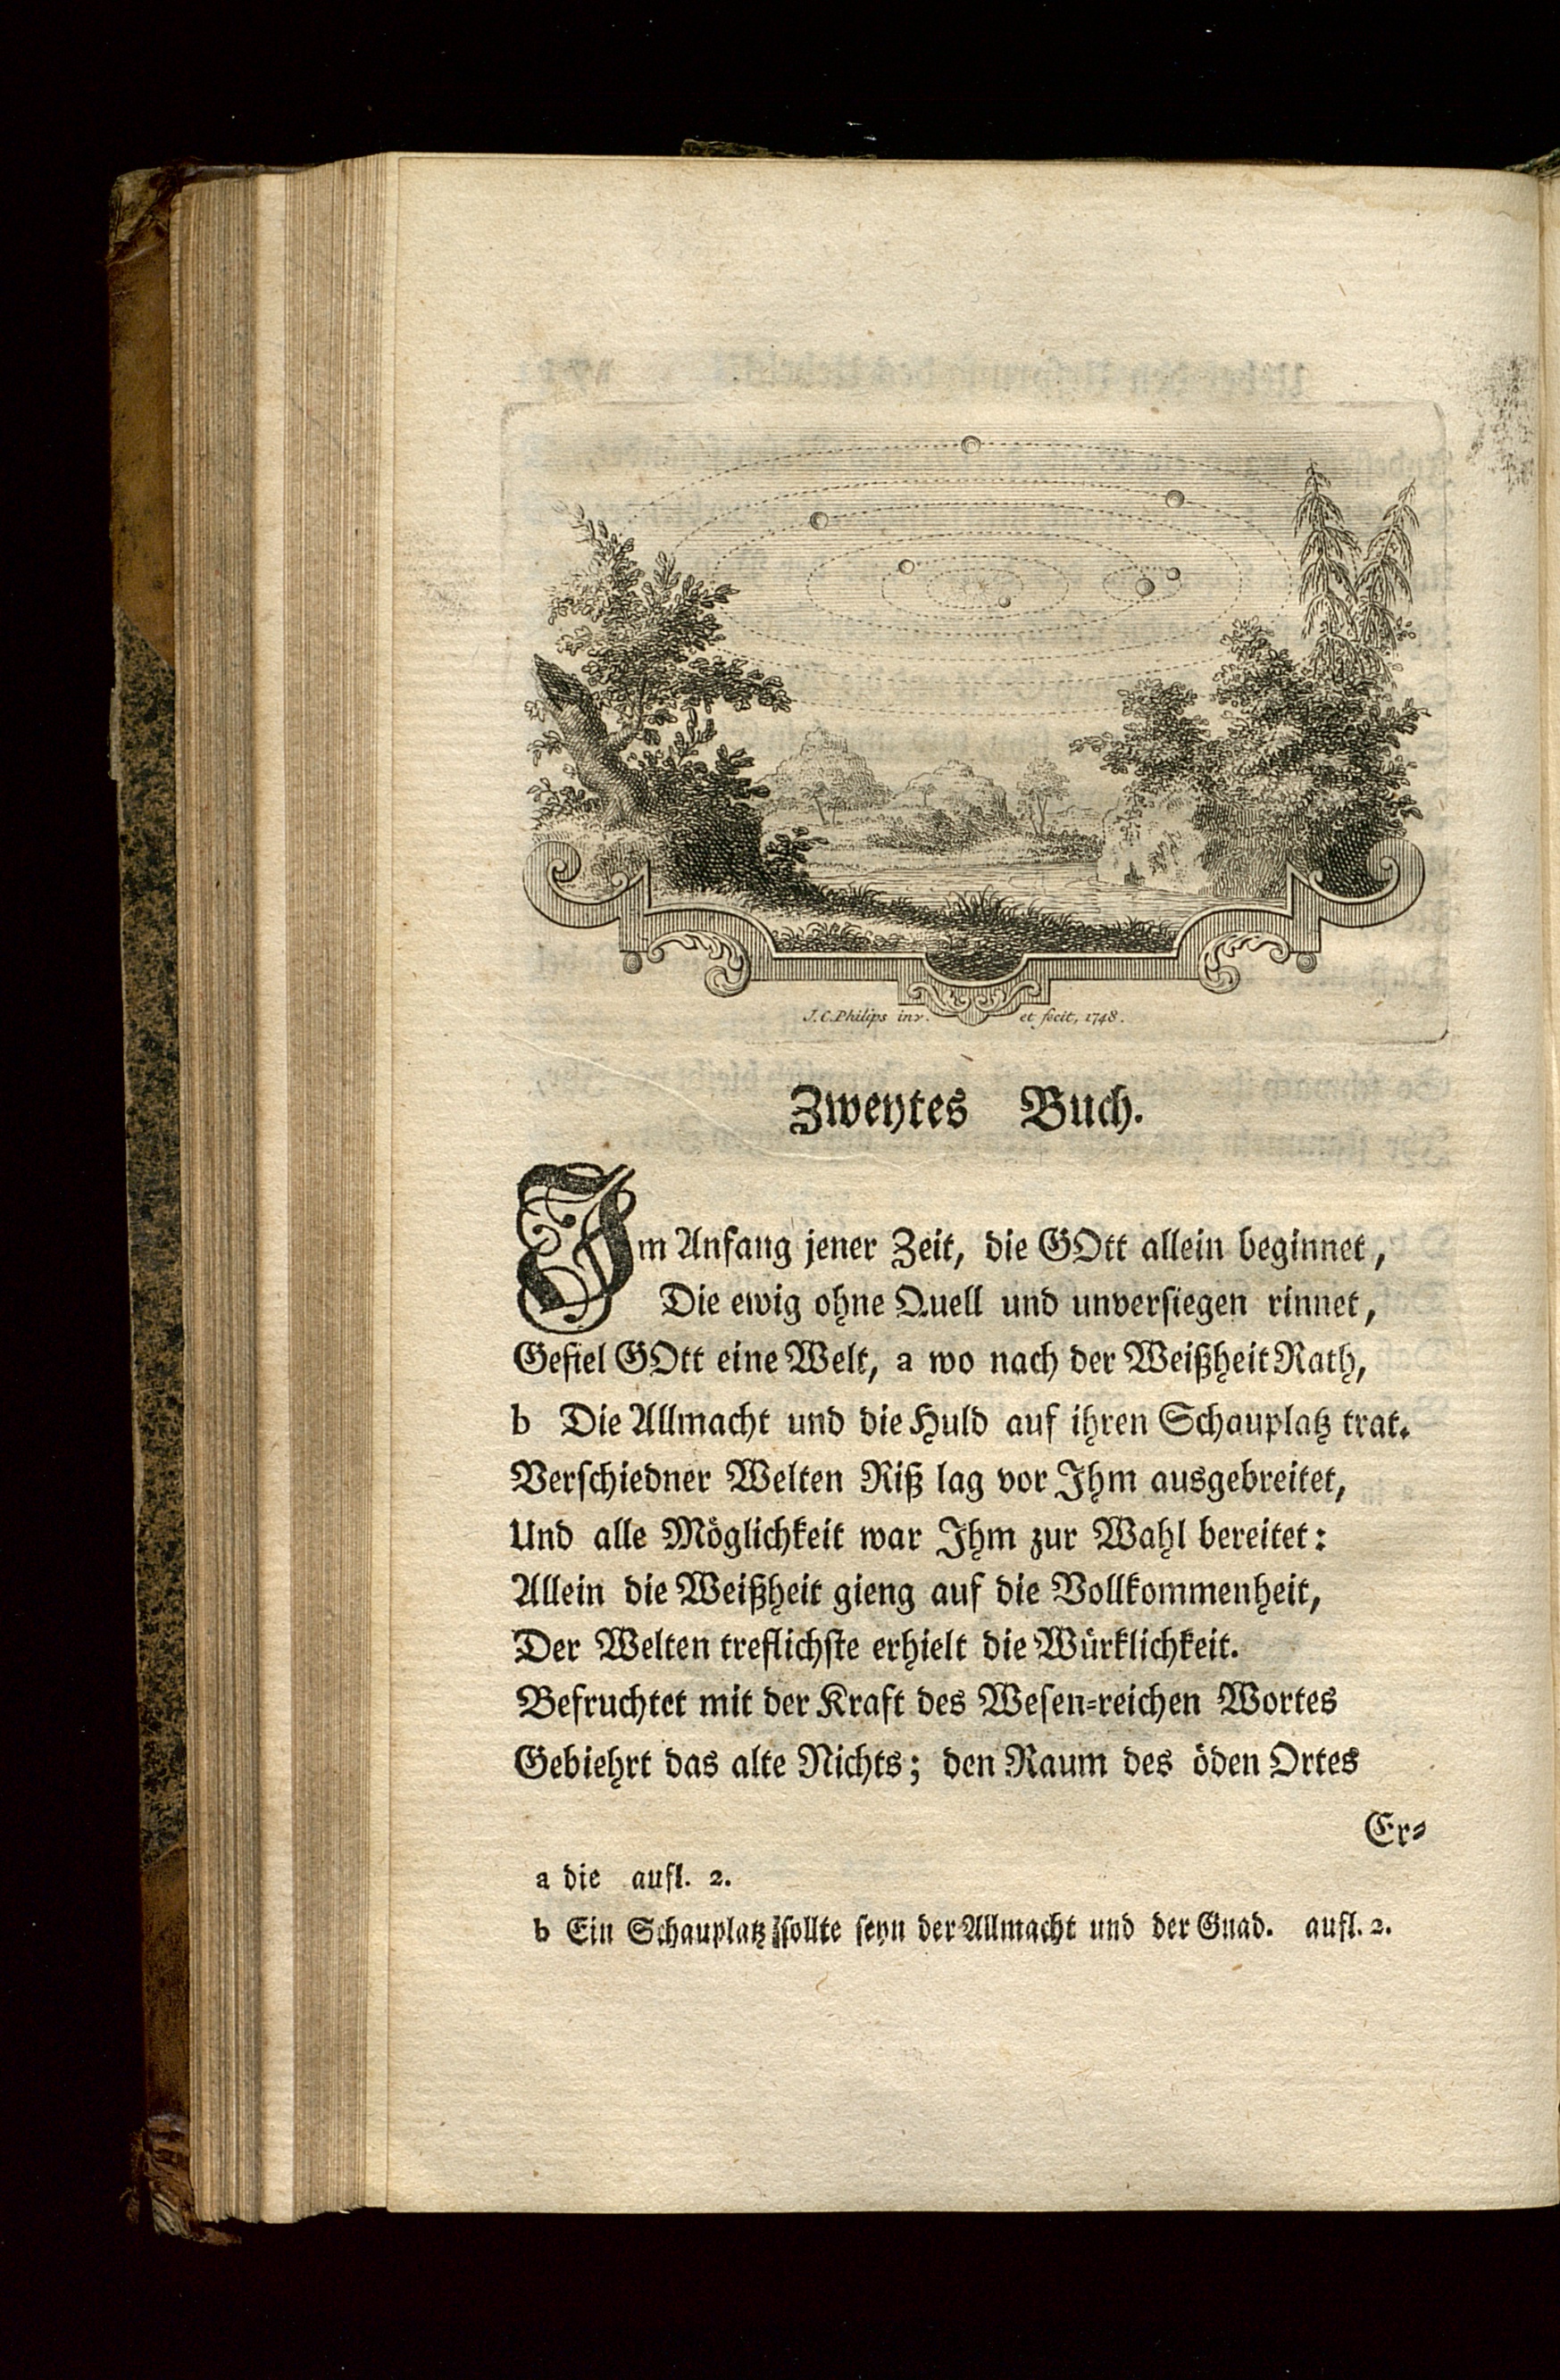 J. C. Philips inv. et fecit, 1748.
Zweytes Buch.
Im Anfang jener Zeit, die GOtt allein beginnet,
Die ewig ohne Quell und unversiegen rinnet,
Gefiel GOtt eine Welt, a wo nach der Weißheit Rath,
b Die Allmacht und die Huld auf ihren Schauplatz trat.
Verschiedner Welten Riß lag vor Ihm ausgebreitet,
Und alle Möglichkeit war Ihm zur Wahl bereitet:
Allein die Weißheit gieng auf die Vollkommenheit,
Der Welten treflichste erhielt die Würklichkeit.
Befruchtet mit der Kraft des Wesen=reichen Wortes
Gebiehrt das alte Nichts; den Raum des öden Ortes
Er=
a die aufl. 2.
b Ein Schauplatz sollte seyn der Allmacht und der Gnad. aufl. 2.